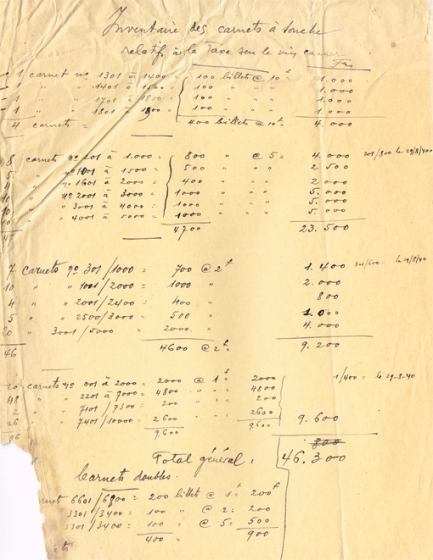 Inventaire des carnets à souche
relatif à la Taxe sur le vin
Frs
1 carnet no 1301 à 1400 = 100 billets @ 10f 1.000
" " 1401 à 1500 = 100 " " 1.000
" " 1701 à 1800 = 100 " " 1.000
" " 1801 à 1900 = 100 " " 1.000
4 carnets = 400 billets @ 10f. 4.000
8 carnets no 201 à 1.000 = 800 " @ 5. 4.000
5 " no 1001 à 1500 = 500 " " 2.500
4 " no 1601 à 2000 = 400 " " 2.000
10 " no 2001 à 3000 = 1000 " " 5.000
10 " " 3001 à 4000 = 1000 " " 5.000
10 " " 4001 à 5000 = 1000 " " 5.000
47 4700 23.500
7 carnets no 301/1000 = 700 @ 2f 1.400
10 " no 1001/2000 = 1000 " 2.000
4 " " 2001/2400 = 400 " 800
5 " " 2500/3000 = 500 " 1.000
20 " 3001/5000 = 2000. " 4.000
46 4600 @ 2f. 9.200
20 carnets no 001 à 2000 = 2000 @ 1f 2000 1/400 : le 29-8-40
48 " " 2201 à 7000 = 4800 " " 4800
2 " " 7101/7300 = 200 " " 200
26 " " 7401/10000 = 2600 " " 2600 9.600
96 9.600 9600
Total général : 46.300
Carnets doubles.
carnet 6601/6800 = 200 billets @ 1. 200f
3301/3400 = 100 " @ 2: 200
3301/3400 = 100 " @ 5: 500
400 900